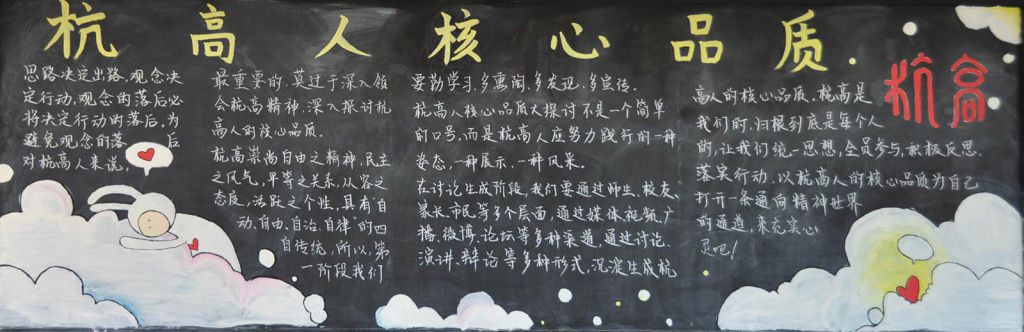 杭高人核心品质.
思路决定出路,观念决
定行动,观念的落后必
将决定行动的落后,为
避免观念的落 后
对杭高人来说,
最重要的,莫过于深入领
会杭高精神,深入探讨杭
高人的核心品质.
杭高崇尚自由之精神,民主
之风气,平等之关系,从容之
态度,活跃之个性,具有自
动、自由、自治、自律"的四
自传统,所以,第
一阶段我们
要勤学习,多惠询,多发现,多宣传.
杭高人核心品质大探讨不是一个简单
的口号,而是杭高人应努力践行的一种
姿态,一种展示,一种风采.
在讨论生成阶段,我们要通过师生、校友、
家长、市民等多个层面,通过媒体视频、广
播、微博、论坛等多种渠道,通过讨论、
演讲、辩论等多种形式,沉淀生成杭
高人的核心品质.杭高是
我们的,归根到底是每个人
的,让我们统一思想,全员参与,积极反思,
落实行动,以杭高人的核心品质为自己
打开一条通向精神世界
的通道,来充实心
灵吧!
杭高